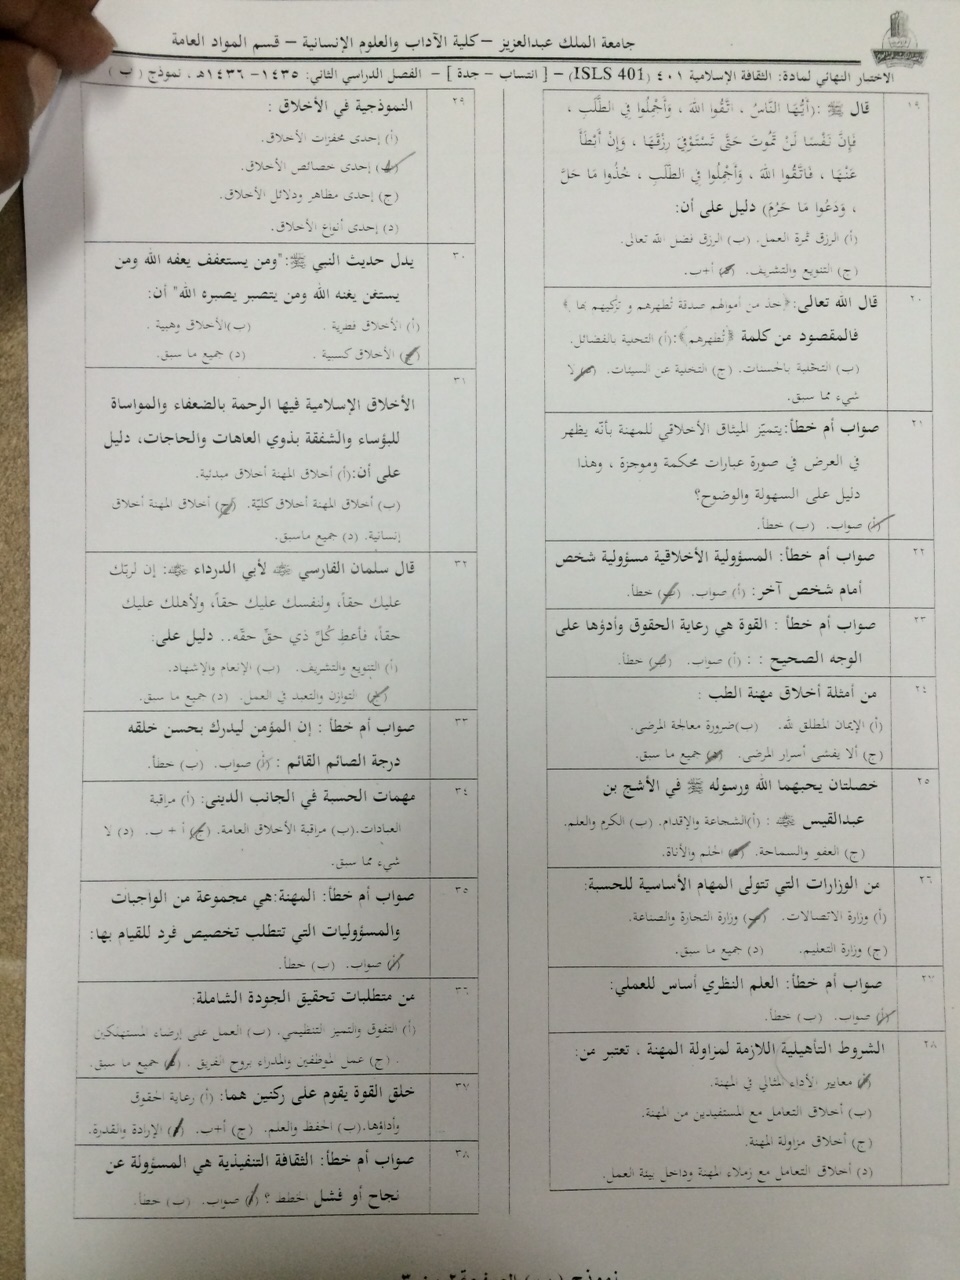 جامعة الملك عبدالعزيز – كلية الآداب والعلوم الإنسانية – قسم المواد العامة
الاختبار النهائي لمادة: الثقافة الإسلامية ٤٠١ (ISLS 401) – [ انتساب – جدة ] – الفصل الدراسي الثاني: ١٤٣٥–١٤٣٦هـ ، نموذج ( ب )
١٩
قال ﷺ :(أَيُّهَا النَّاسُ ، اتَّقُوا اللهَ ، وَأَجْمِلُوا فِي الطَّلَبِ ،
فَإِنَّ نَفْسًا لَنْ تَمُوتَ حَتَّى تَسْتَوْفِيَ رِزْقَهَا ، وَإِنْ أَبْطَأَ
عَنْهَا ، فَاتَّقُوا اللهَ ، وَأَجْمِلُوا فِي الطَّلَبِ ، خُذُوا مَا حَلَّ
، وَدَعُوا مَا حَرُمَ) دليل على أن:
(أ) الرزق ثمرة العمل. (ب) الرزق فضل الله تعالى.
(ج) التنويع والتشريف. (د) أ+ب.
٢٠
قال الله تعالى:﴿خذ من أموالهم صدقة تُطهرهم و تزكيهم بها ﴾
فالمقصود من كلمة ﴿تُطهرهم﴾:(أ) التحلية بالفضائل.
(ب) التحلية بالحسنات. (ج) التخلية عن السيئات. (د) لا
شيء مما سبق.
٢١
صواب أم خطأ:يتميّز الميثاق الأخلاقي للمهنة بأنّه يظهر
في العرض في صورة عبارات محكمة وموجزة ، وهذا
دليل على السهولة والوضوح؟
(أ) صواب. (ب) خطأ.
٢٢
صواب أم خطأ: المسؤولية الأخلاقية مسؤولية شخص
أمام شخص آخر: (أ) صواب. (ب) خطأ.
٢٣
صواب أم خطأ : القوة هي رعاية الحقوق وأدؤها على
الوجه الصحيح : : (أ) صواب. (ب) خطأ.
٢٤
من أمثلة أخلاق مهنة الطب :
(أ) الإيمان المطلق لله. (ب)ضرورة معالجة المرضى.
(ج) ألا يفشى أسرار المرضى. (د) جميع ما سبق.
٢٥
خصلتان يحبهما الله ورسوله ﷺ في الأشج بن
عبدالقيس : (أ)الشجاعة والإقدام. (ب) الكرم والعلم.
(ج) العفو والسماحة. (د) الحلم والأناة.
٢٦
من الوزارات التي تتولى المهام الأساسية للحسبة:
(أ) وزارة الاتصالات. (ب) وزارة التجارة والصناعة.
(ج) وزارة التعليم. (د) جميع ما سبق.
٢٧
صواب أم خطأ: العلم النظري أساس للعملي:
(أ) صواب. (ب) خطأ.
٢٨
الشروط التأهيلية اللازمة لمزاولة المهنة ، تعتبر من:
(أ) معايير الأداء المثالي في المهنة.
(ب) أخلاق التعامل مع المستفيدين من المهنة.
(ج) أخلاق مزاولة المهنة.
(د) أخلاق التعامل مع زملاء المهنة وداخل بيئة العمل.
٢٩
النموذجية في الأخلاق :
(أ) إحدى محفزات الأخلاق.
(ب) إحدى خصائص الأخلاق.
(ج) إحدى مظاهر ودلائل الأخلاق.
(د) إحدى أنواع الأخلاق.
٣٠
يدل حديث النبي ﷺ:"ومن يستعفف يعفه الله ومن
يستغن يغنه الله ومن يتصبر يصبره الله" أن:
(أ) الأخلاق فطرية . (ب)الأخلاق وهبية .
(ج) الأخلاق كسبية . (د) جميع ما سبق.
٣١
الأخلاق الإسلامية فيها الرحمة بالضعفاء والمواساة
للبؤساء والشفقة بذوي العاهات والحاجات، دليل
على أن:(أ) أخلاق المهنة أخلاق مبدئية.
(ب) أخلاق المهنة أخلاق كليّة. (ج) أخلاق المهنة أخلاق
إنسانية. (د) جميع ماسبق.
٣٢
قال سلمان الفارسي لأبي الدرداء : إن لربّك
عليك حقاً، ولنفسك عليك حقاً، ولأهلك عليك
حقاً، فأعطِ كُلَّ ذي حقّ حقّه.. دليل على:
(أ) التنويع والتشريف. (ب) الإنعام والإشهاد.
(ج) التوازن والتعبد في العمل. (د) جميع ما سبق.
٣٣
صواب أم خطأ : إن المؤمن ليدرك بحسن خلقه
درجة الصائم القائم : (أ) صواب. (ب) خطأ.
٣٤
مهمات الحسبة في الجانب الديني: (أ) مراقبة
العبادات.(ب) مراقبة الأخلاق العامة. (ج) أ + ب. (د) لا
شيء مما سبق.
٣٥
صواب أم خطأ: المهنة:هي مجموعة من الواجبات
والمسؤوليات التي تتطلب تخصيص فرد للقيام بها:
(أ) صواب. (ب) خطأ.
٣٦
من متطلبات تحقيق الجودة الشاملة:
(أ) التفوق والتميز التنظيمي. (ب) العمل على إرضاء المستهلكين
. (ج) عمل الموظفين والمدراء بروح الفريق . (د) جميع ما سبق.
٣٧
خلق القوة يقوم على ركنين هما: (أ) رعاية الحقوق
وأداؤها.(ب) الحفظ والعلم. (ج) أ+ب. (د) الإرادة والقدرة.
٣٨
صواب أم خطأ: الثقافة التنفيذية هي المسؤولة عن
نجاح أو فشل الخطط ؟ (أ) صواب. (ب) خطأ.